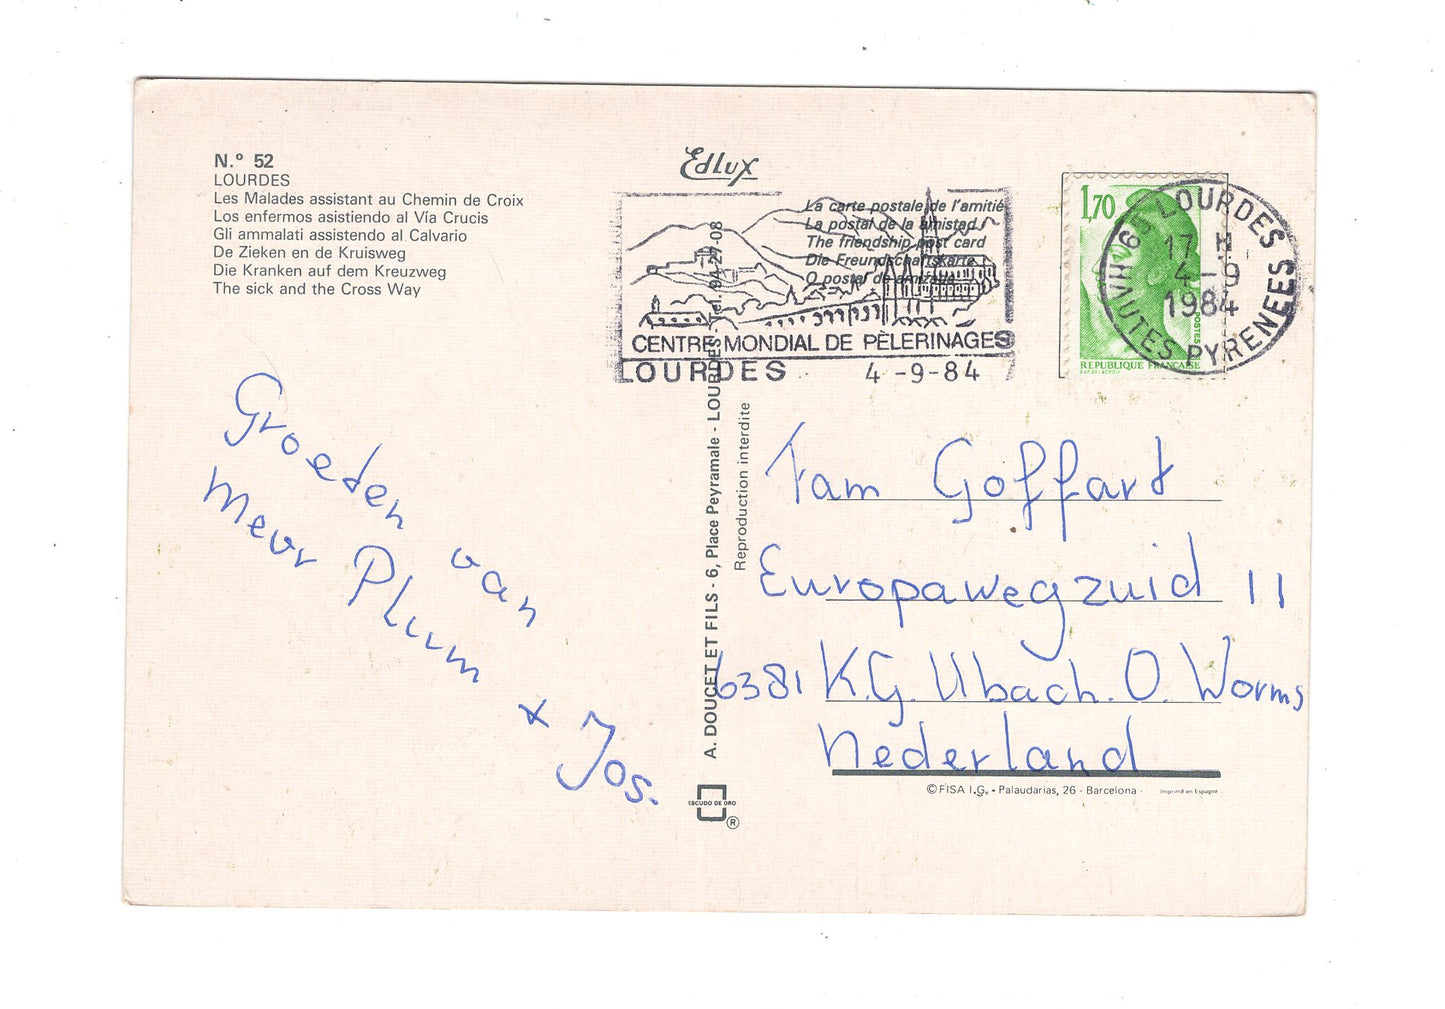 N.º 52
LOURDES
Les Malades assistant au Chemin de Croix
Los enfermos asistiendo al Vía Crucis
Gli ammalati assistendo al Calvario
De Zieken en de Kruisweg
Die Kranken auf dem Kreuzweg
The sick and the Cross Way
Edlux
La carte postale de l'amitié
La postal de la amistad
The friendship post card
Die Freundschaftskarte
O postal de
CENTRE MONDIAL DE PÈLERINAGES
LOURDES 4-9-84
1,70
POSTES
REPUBLIQUE FRANÇAISE
65 LOURDES
17 H
4-9
1984
HAUTES PYRENEES
Groeten van
Mevr Plum + Jos.
A. DOUCET ET FILS - 6, Place Peyramale - LOURDES - Tel. 94-27-08
Reproduction interdite
Fam Goffart
Europawegzuid 11
6381 K.G. Ubach. O. Worms
Nederland
ESCUDO DE ORO
®
© FISA I.G. - Palaudarias, 26 - Barcelona - Imprimé en Espagne